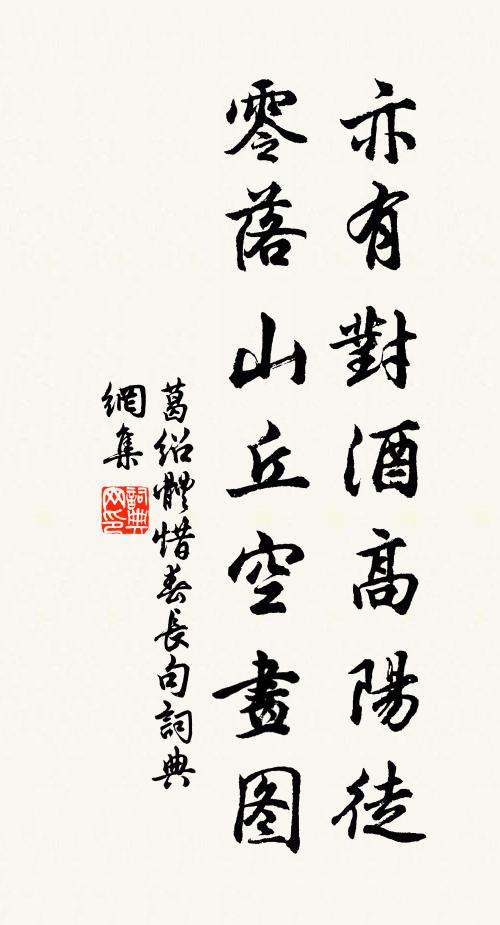 亦有對酒高陽徒
零落山丘空畫图
葛绍體惜春長句詞典
網集
詞典网印